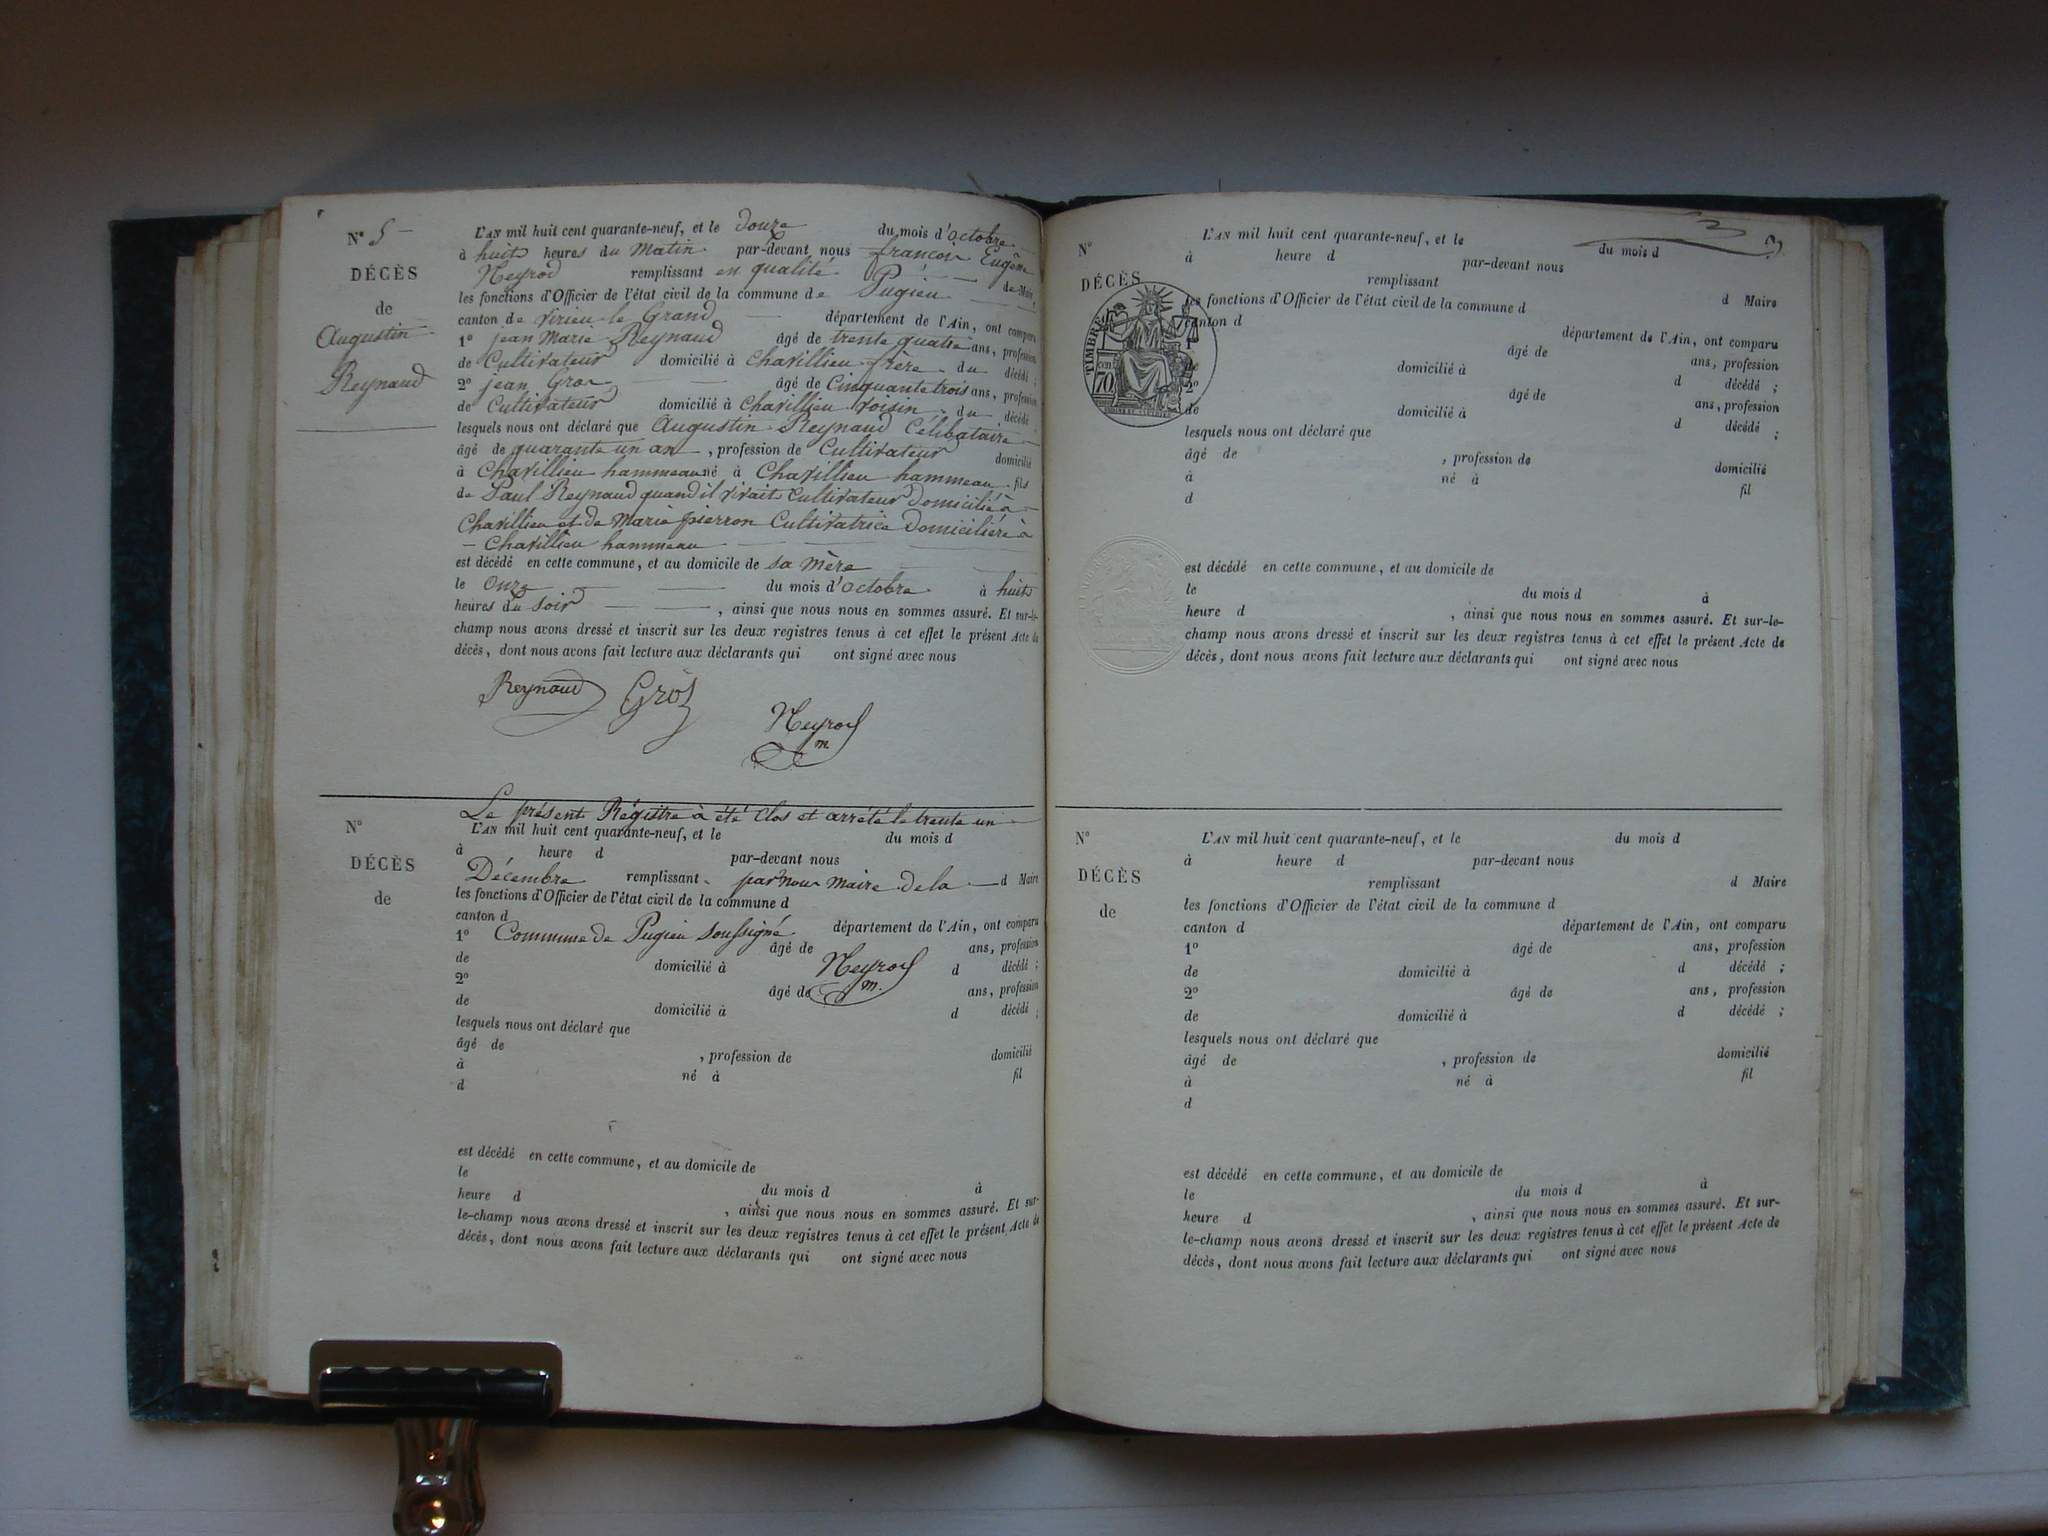 N° 5
DÉCÈS
de
Augustin
Reynaud
L'AN mil huit cent quarante-neuf, et le douze du mois d'octobre
à huits heures du Matin par-devant nous françon Eugène
Neyrod remplissant en qualité de Maire
les fonctions d'Officier de l'état civil de la commune de Pugieu
canton de Virieu le Grand département de l'Ain, ont comparu
1° jean Marie Reynaud âgé de trente quatre ans, profession
de Cultivateur domicilié à Chavillieu frère du décédé ;
2° jean Gros âgé de Cinquante trois ans, profession
de Cultivateur domicilié à Chavillieu voisin du décédé
lesquels nous ont déclaré que Augustin Reynaud Célibataire
âgé de quarante un an , profession de Cultivateur domicilié
à Chavillieu hammeau né à Chavillieu hammeau fils
de Paul Reynaud quand il vivait Cultivateur Domicilié à
Chavillieu et de Marie pierron Cultivatrice Domiciliéré à
Chavillieu hammeau
est décédé en cette commune, et au domicile de sa mère
le onze du mois d'octobre à huits
heures du soir , ainsi que nous nous en sommes assuré. Et sur-le-
champ nous avons dressé et inscrit sur les deux registres tenus à cet effet le présent Acte de
décès, dont nous avons fait lecture aux déclarants qui ont signé avec nous
Reynaud Gros
Neyrod
m.
Le présent Régistre à été Clos et arrété le trente un
N°
DÉCÈS
de
L'AN mil huit cent quarante-neuf, et le du mois d
à heure d par-devant nous
Décembre remplissant par nous maire de la d Maire
les fonctions d'Officier de l'état civil de la commune d
canton d département de l'Ain, ont comparu
Commune de Pugieu soussigné
1° âgé de ans, profession
de domicilié à d décédé ;
Neyrod
m.
2° âgé de ans, profession
de domicilié à d décédé ;
lesquels nous ont déclaré que
âgé de , profession de domicilié
à né à fil
d
est décédé en cette commune, et au domicile de
le du mois d à
heure d , ainsi que nous nous en sommes assuré. Et sur-
le-champ nous avons dressé et inscrit sur les deux registres tenus à cet effet le présent Acte de
décès, dont nous avons fait lecture aux déclarants qui ont signé avec nous
3
N°
DÉCÈS
TIMBRE
70
L'AN mil huit cent quarante-neuf, et le du mois d
à heure d par-devant nous
remplissant d Maire
les fonctions d'Officier de l'état civil de la commune d
canton d département de l'Ain, ont comparu
1° âgé de ans, profession
de domicilié à d décédé ;
2° âgé de ans, profession
de domicilié à d décédé ;
lesquels nous ont déclaré que
âgé de , profession de domicilié
à né à fil
d
est décédé en cette commune, et au domicile de
le du mois d à
heure d , ainsi que nous nous en sommes assuré. Et sur-le-
champ nous avons dressé et inscrit sur les deux registres tenus à cet effet le présent Acte de
décès, dont nous avons fait lecture aux déclarants qui ont signé avec nous
N°
DÉCÈS
de
L'AN mil huit cent quarante-neuf, et le du mois d
à heure d par-devant nous
remplissant d Maire
les fonctions d'Officier de l'état civil de la commune d
canton d département de l'Ain, ont comparu
1° âgé de ans, profession
de domicilié à d décédé ;
2° âgé de ans, profession
de domicilié à d décédé ;
lesquels nous ont déclaré que
âgé de , profession de domicilié
à né à fil
d
est décédé en cette commune, et au domicile de
le du mois d à
heure d , ainsi que nous nous en sommes assuré. Et sur-
le-champ nous avons dressé et inscrit sur les deux registres tenus à cet effet le présent Acte de
décès, dont nous avons fait lecture aux déclarants qui ont signé avec nous